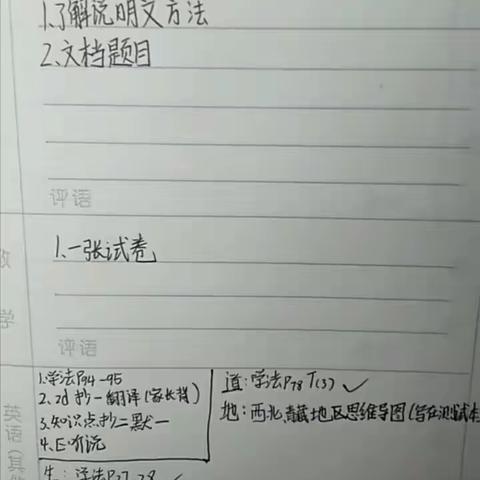 1.了解说明文方法
2.文档题目
评语
数学
1.一张试卷
评语
英语(其他
1.学法P94-95
2.2d抄一翻译(家长背)
3.知识点抄二默一
4.E听说
道:学法P78 T(3) ✓
地:西北、青藏地区思维导图(写在测试本
生:学法P27-28 ✓